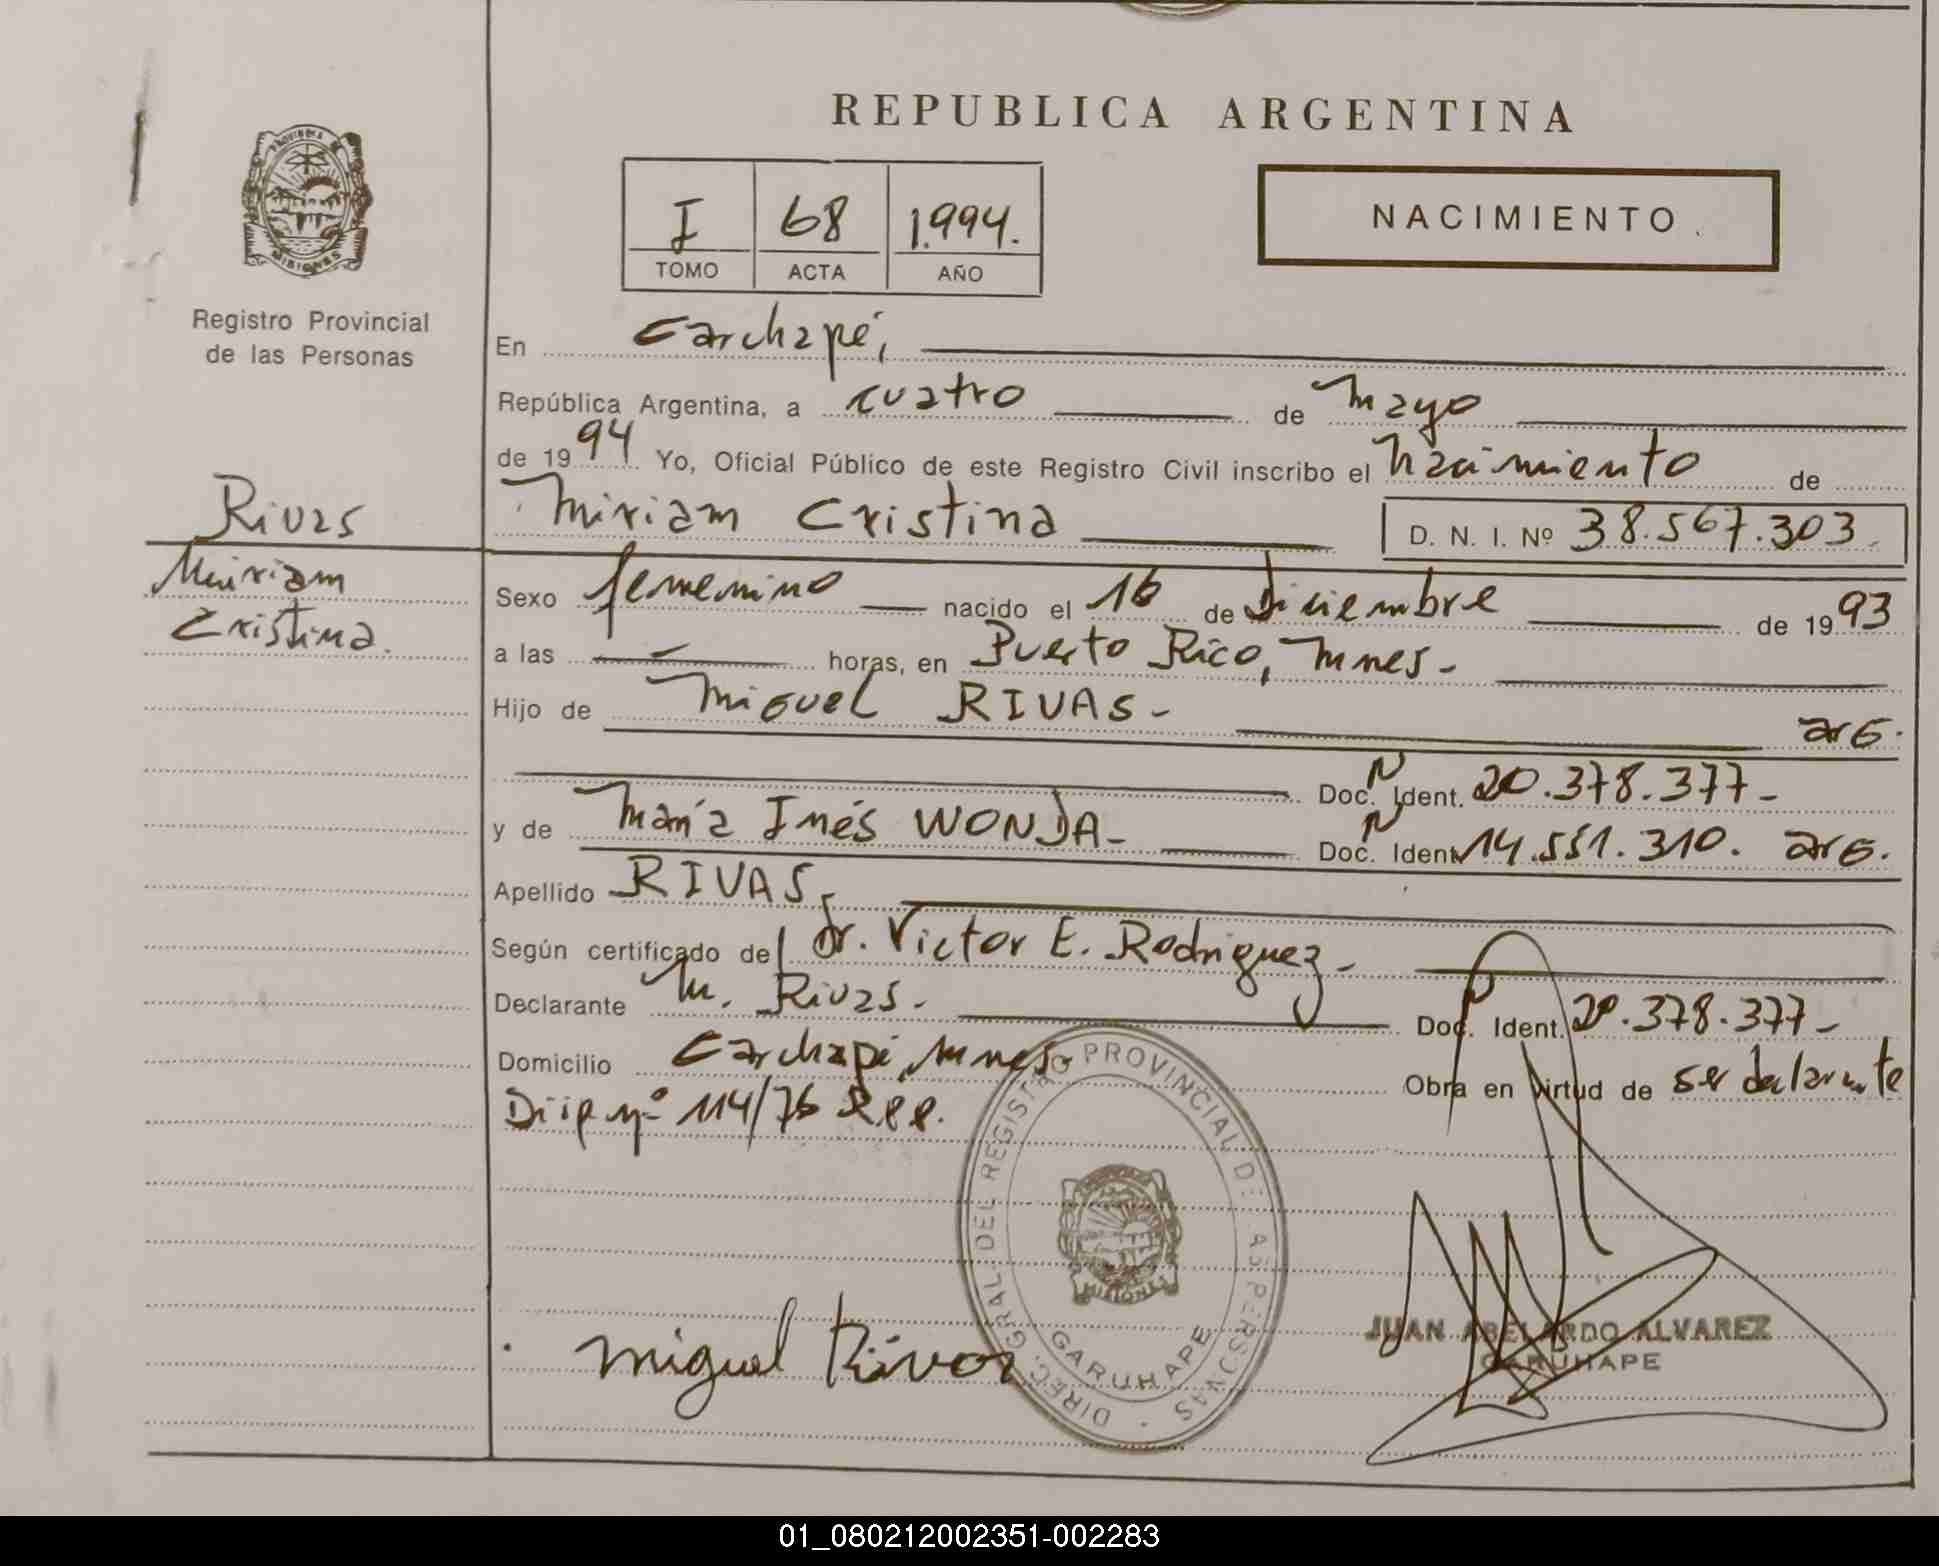 REPUBLICA ARGENTINA
I 68 1.994.
TOMO ACTA AÑO
NACIMIENTO
PROVINCIA
MISIONES
Registro Provincial
de las Personas
Rivas
Miriam
Cristina.
En Carhapé,
República Argentina, a cuatro de Mayo
de 1994 Yo, Oficial Público de este Registro Civil inscribo el Nacimiento de
Miriam Cristina D. N. I. Nº 38.567.303.
Sexo femenino nacido el 16 de Diciembre de 1993
a las — horas, en Puerto Rico, Mnes-
Hijo de Miguel RIVAS- arg.
Doc. N Ident. 20.378.377-
y de María Inés WONDA- Doc. N Ident. 14.551.310. arg.
Apellido RIVAS-
Según certificado del Dr. Victor E. Rodriguez-
Declarante M. Rivas- Doc. Ident. 20.378.377-
Domicilio Mnes- Obra en virtud de ser declarante
nº 114/76
DIREC. GRAL. DEL REGISTRO PROVINCIAL DE LAS PERSONAS
MISIONES
GARUHAPE
Miguel Rivas
JUAN ABELARDO ALVAREZ
GARUHAPE
01_080212002351-002283